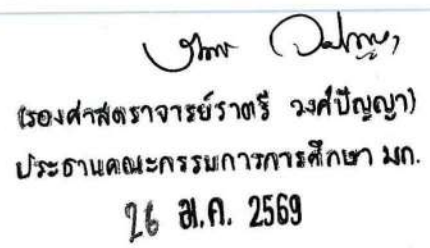 (รองศาสตราจารย์ราตรี วงศ์ปัญญา)
ประธานคณะกรรมการการศึกษา มก.
26 ม.ค. 2569